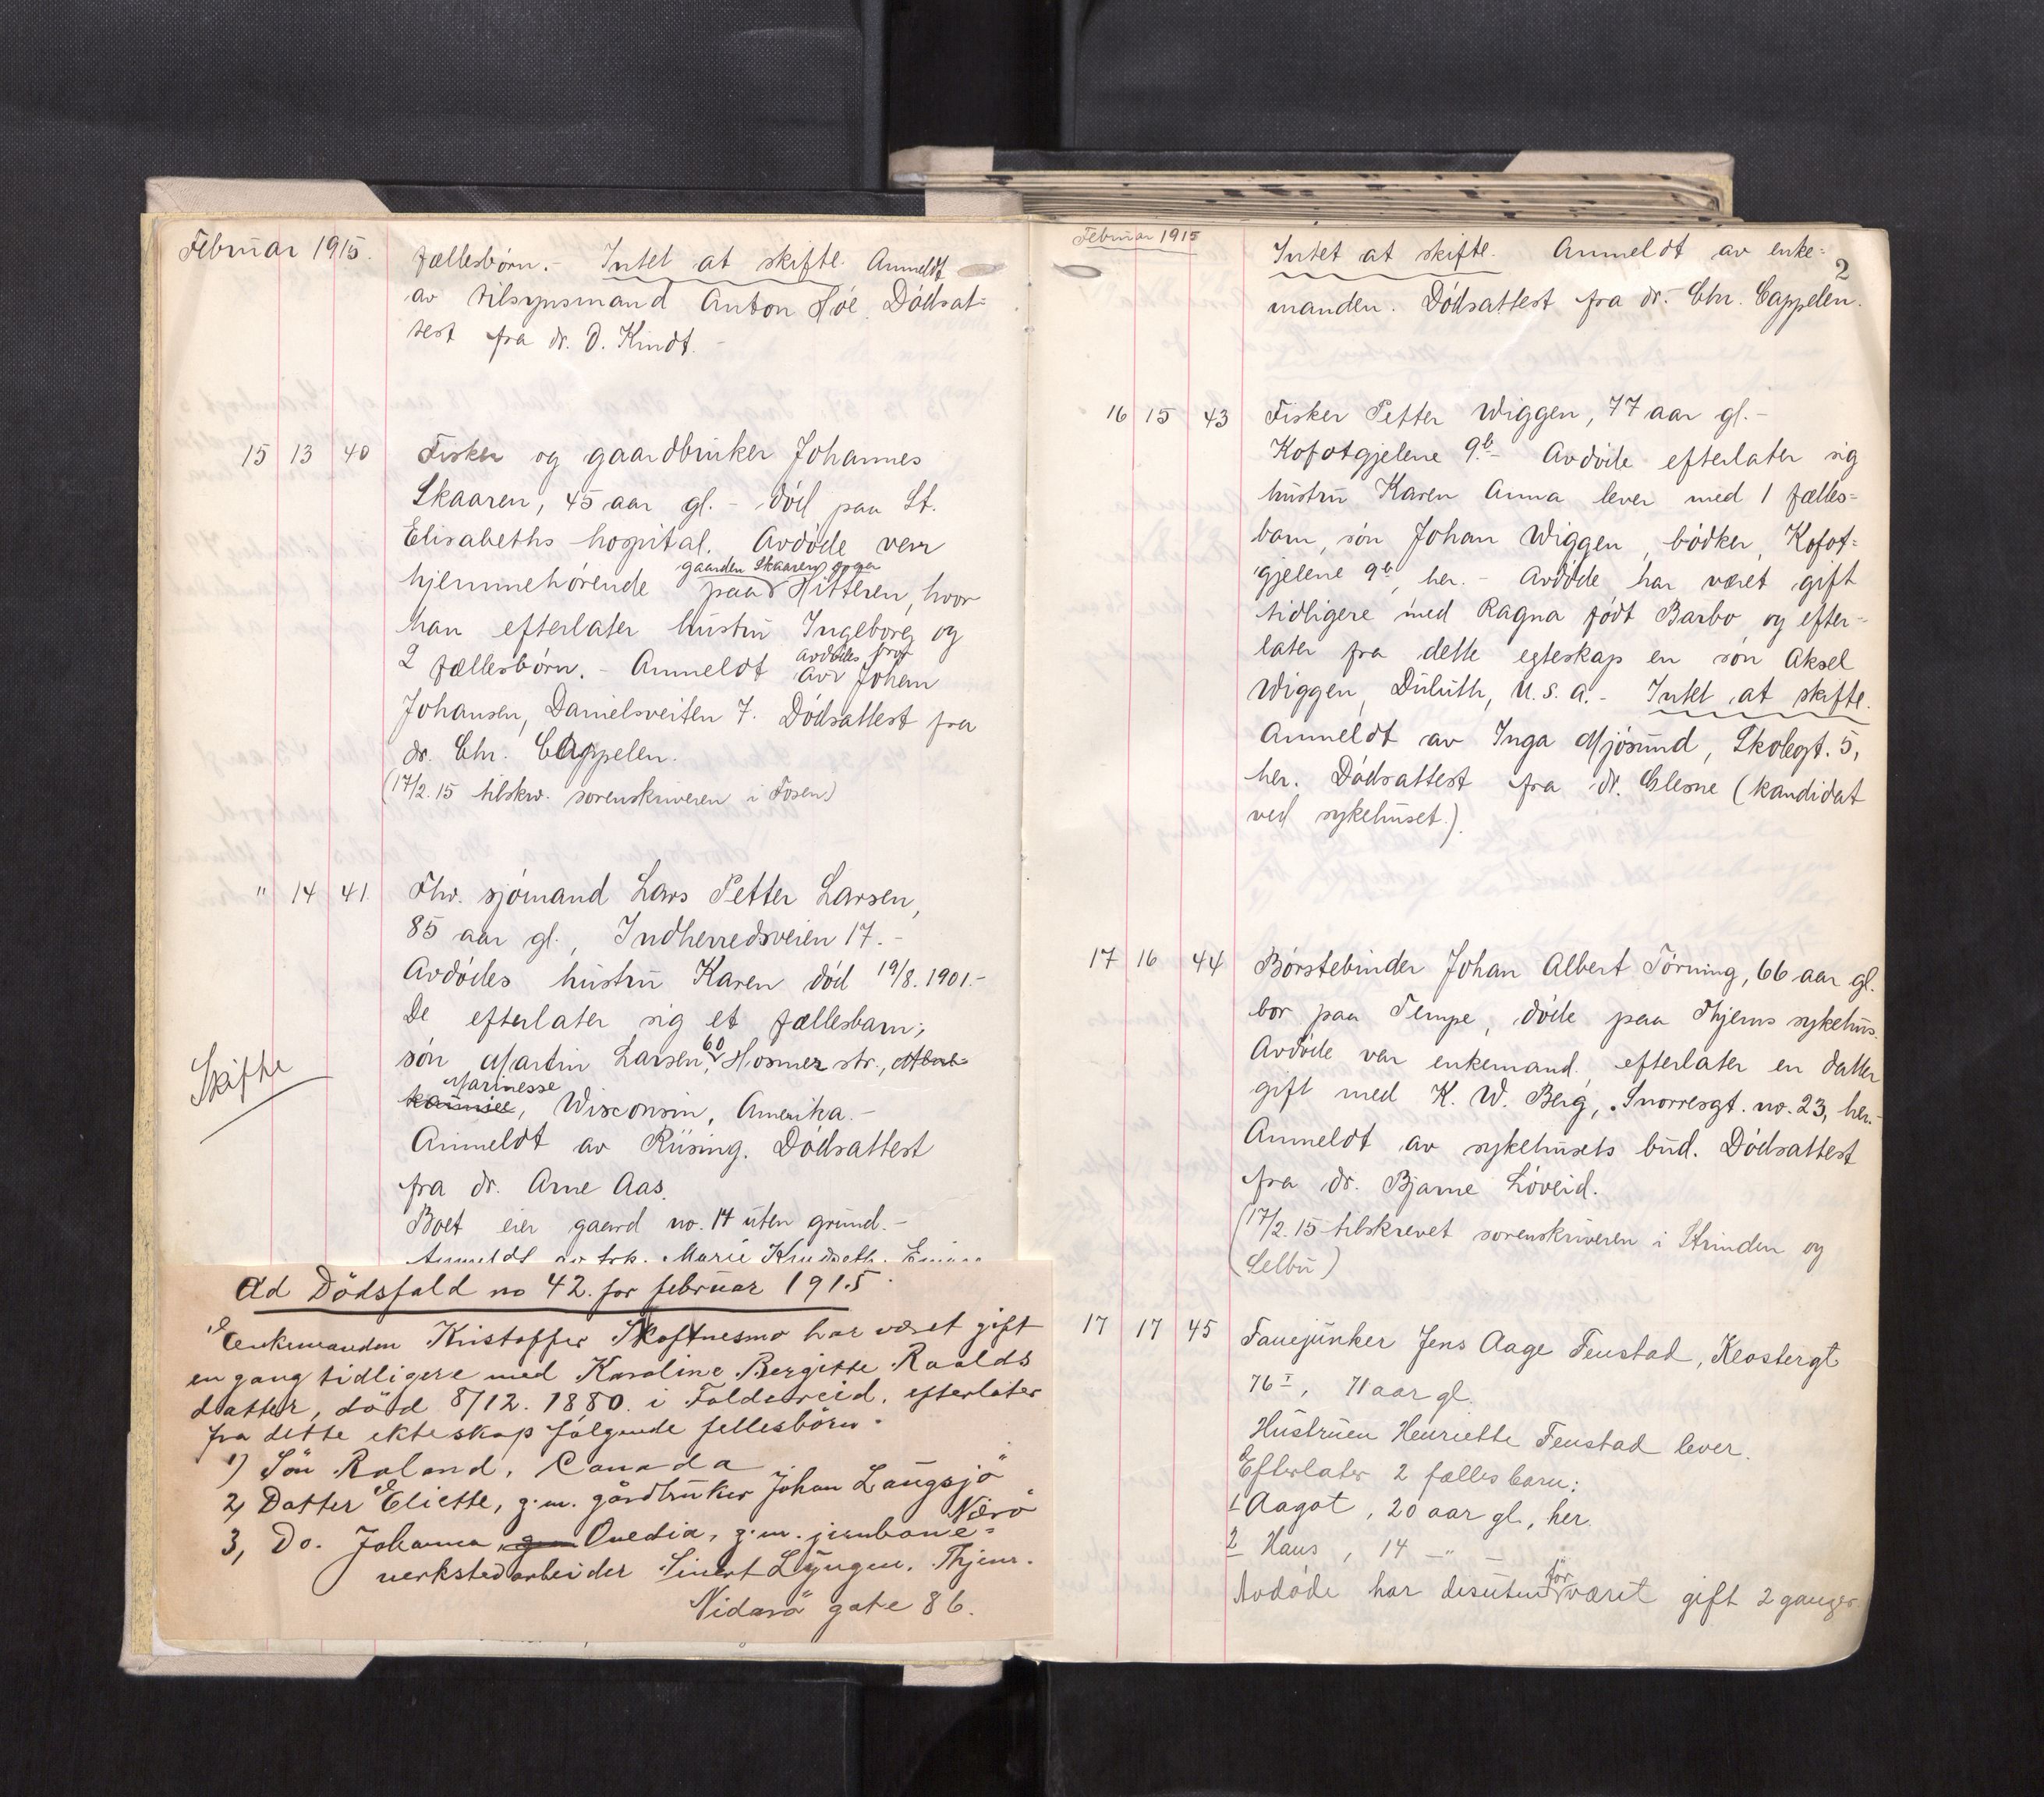 Februar 1915.
fællesbörn. - Intet at skifte. Anmeldt
av tilsynsmand Anton Höe. Dödsat=
test fra dr. O. Kindt. -
15 13 40 Fisker og gaardbruker Johannes
Skaaren, 45 aar gl. - död paa St.
Elisabeths hospital. Avdöde var
gaarden Skaaren
hjemmehörende paa Hitteren, hvor
han efterlater hustru Ingeborg og
avdödes
2 fællesbörn. - Anmeldt av Johan
Johansen, Danielsveiten 7. Dödsattest fra
dr. Chr. Cappelen.
(17/2.15 tilskr. sorenskriveren i Fosen)
" 14 41. Fhv. sjömand Lars Petter Larsen,
85 aar gl., Indherredsveien 17. -
Avdödes hustru Karen död 19/8.1901. -
De efterlater sig et fællesbarn;
60
sön Martin Larsen, Hosmer str.,
Skifte
Marinesse
, Wisconsin, Amerika. -
Anmeldt av Riising. Dödsattest
fra dr. Arne Aas.
Boet eier gaard no. 14 uten grund. -
Anmeldt av frk. Marie
Ad Dödsfald no 42. for februar 1915.
Enkemanden Kristoffer Skoftnesmo har været gift
en gang tidligere med Karoline Bergitte Roalds
datter, död 8/12. 1880. i Foldereid. efterlater
fra dette ekteskap fölgende fellesbörn.
1) Sön Roland, Canada
2, Datter Eliette, g.m. gårdbruker Johan Langsjö
Nærö
3, Do. Johanna, Ovedia, g.m. jernbane=
verkstedarbeider Sivert Lyngen. Thjem.
Nidarö gate 86.
Februar 1915
2
Intet at skifte. Anmeldt av enke=
manden. Dödsattest fra dr. Chr. Cappelen.
16 15 43 Fisker Petter Wiggen, 77 aar gl. -
Kofotgjelene 9b - Avdöde efterlater sig
hustru Karen Anna lever med 1 fælles=
barn, sön Johan Wiggen, bödker, Kofot=
gjelene 9b, her. - Avdöde har været gift
tidligere med Ragna födt Barbo og efter=
later fra dette egteskap en sön Aksel
Wiggen, Duluth, U.S.A. - Intet at skifte.
Anmeldt av Inga Mjösund, Skolegt. 5,
her. Dödsattest fra dr. Glesne (kandidat
ved sykehuset.)
17 16 44 Börstebinder Johan Albert Törning, 66 aar gl.
bor paa Tempe, döde paa Thjems sykehus.
Avdöde var enkemand, efterlater en datter
gift med K. W. Berg, Snorresgt. no. 23, her. -
Anmeldt av sykehusets bud. Dödsattest
fra dr. Bjarne Löveid.
(17/2.15 tilskrevet sorenskriveren i Strinden og
Selbu)
17 17 45 Fanejunker Jens Aage Fenstad, Klostergt
76 I, 71 aar gl.
Hustruen Henriette Fenstad lever.
Efterlater 2 fællesbarn:
1 Aagot, 20 aar gl., her.
2 Hans, 14 -"- -
för
Avdöde har desuten været gift 2 ganger.